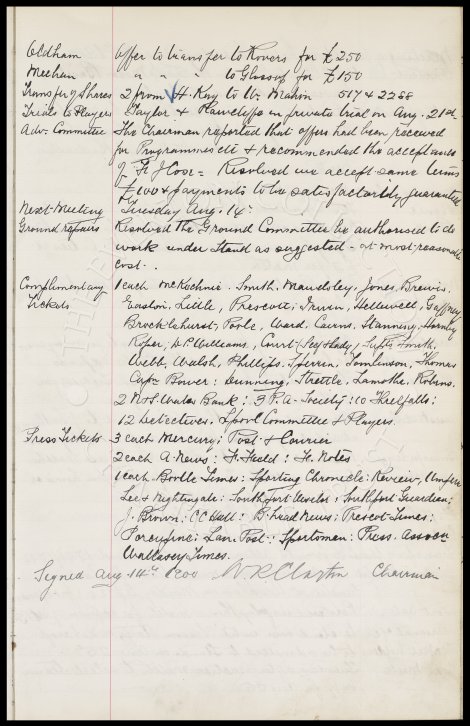 Oldham offer to transfer to Rovers for £250
Meehan " " " to Glossop for £150
Transfer of Shares 2 from H. Kay to W. Mason 517 & 2268
Trials to Players Taylor & Rawcliffe in private trial on Aug. 21st
Adv. Committee The Chairman reported that offers had been received
for Programmes etc & recommended the acceptance
of Resolved we accept same terms
£100 & payments to be satisfactorily guaranteed
Next Meeting Tuesday Aug. 14th
Ground repairs Resolved the Ground Committee be authorised to do
work under Stand as suggested - at most reasonable
cost.
Complimentary 1 each McKechnie. Smith, Mawdsley, Jones, Brewis,
Tickets Easton, Little, Prescott, Irwin, Hellewell, Gaffney
Brocklehurst, Poole, Ward, Cairns, Stanning, Hornby
Roper, W.P. Williams, Court - Supt. Smith,
Webb, Walsh, Phillips, Sperrin, Tomlinson, Thomas
Capt. Bower: Dunning, Lamothe, Robins.
2 No & S. Wales Bank: 3 P.A. Society: 10 Threlfalls:
12 Detectives, Lpool Committee & Players.
Press Tickets 3 each Mercury: Post & Courier
2 each A. News: F. Field: F. Notes
1 each Bootle Times: Sporting Chronicle: Review, Umpire
Lee & Nightingale: Southport Visitor: Southport Guardian:
J. Brown: C.C. Hall: B'head News: Prescot Times:
Porcupine: Lan. Post: Sportsman: Press Assocn
Wallasey Times.
Signed Aug 14th 1900 W.R. Clayton Chairman